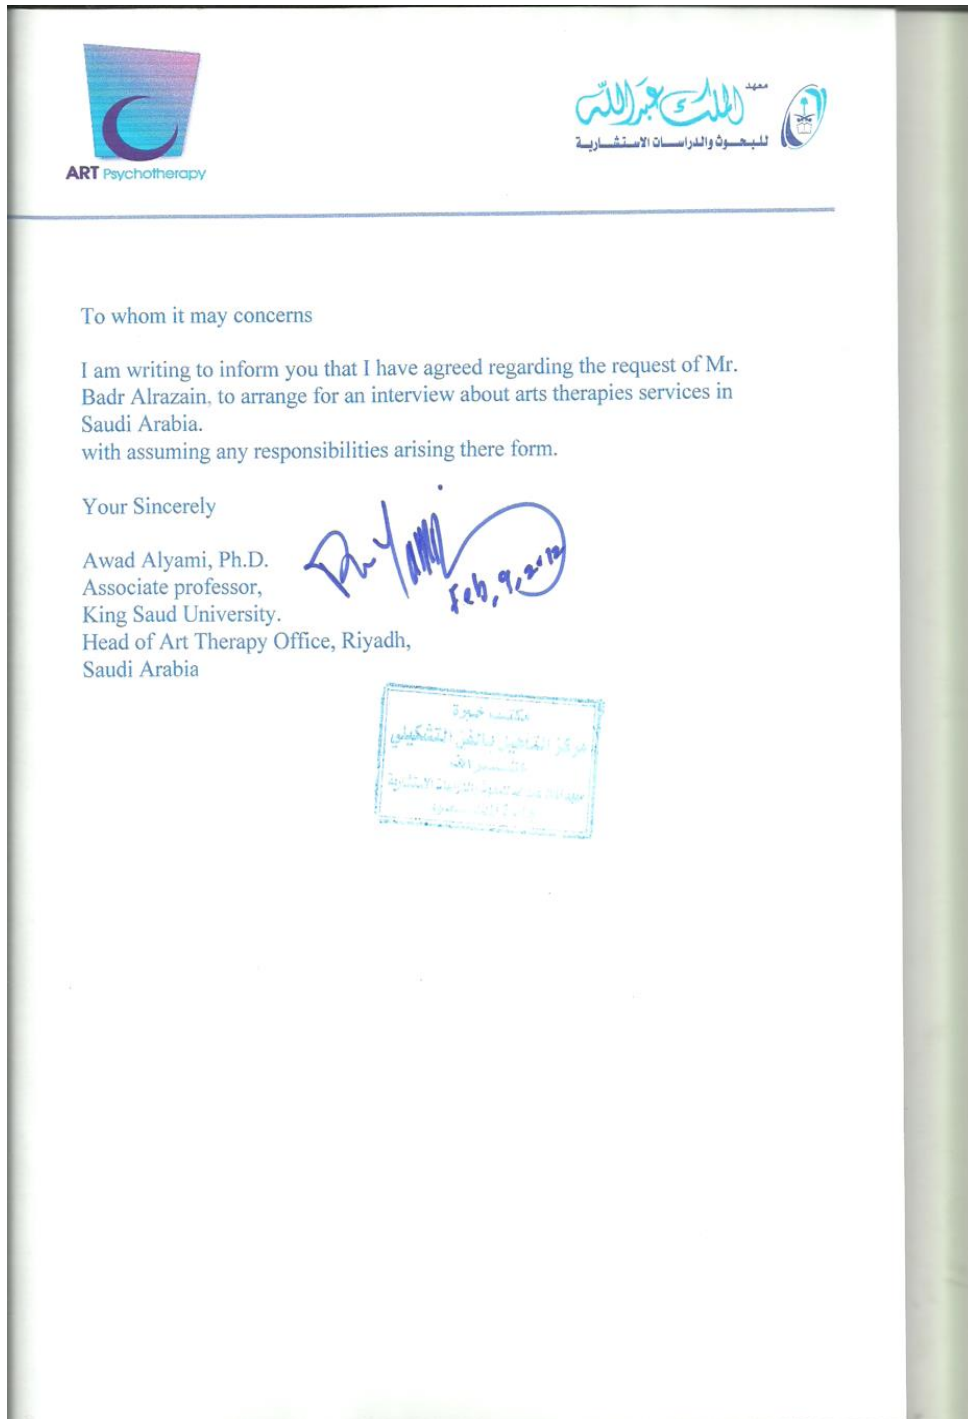 ART Psychotherapy
معهد
الملك عبدالله
للبحوث والدراسات الاستشارية
To whom it may concerns
I am writing to inform you that I have agreed regarding the request of Mr.
Badr Alrazain, to arrange for an interview about arts therapies services in
Saudi Arabia.
with assuming any responsibilities arising there form.
Your Sincerely
Awad Alyami, Ph.D.
Associate professor,
King Saud University.
Head of Art Therapy Office, Riyadh,
Saudi Arabia
Feb, 9, 2012
مكتب خبرة
مركز التأهيل بالفن التشكيلي